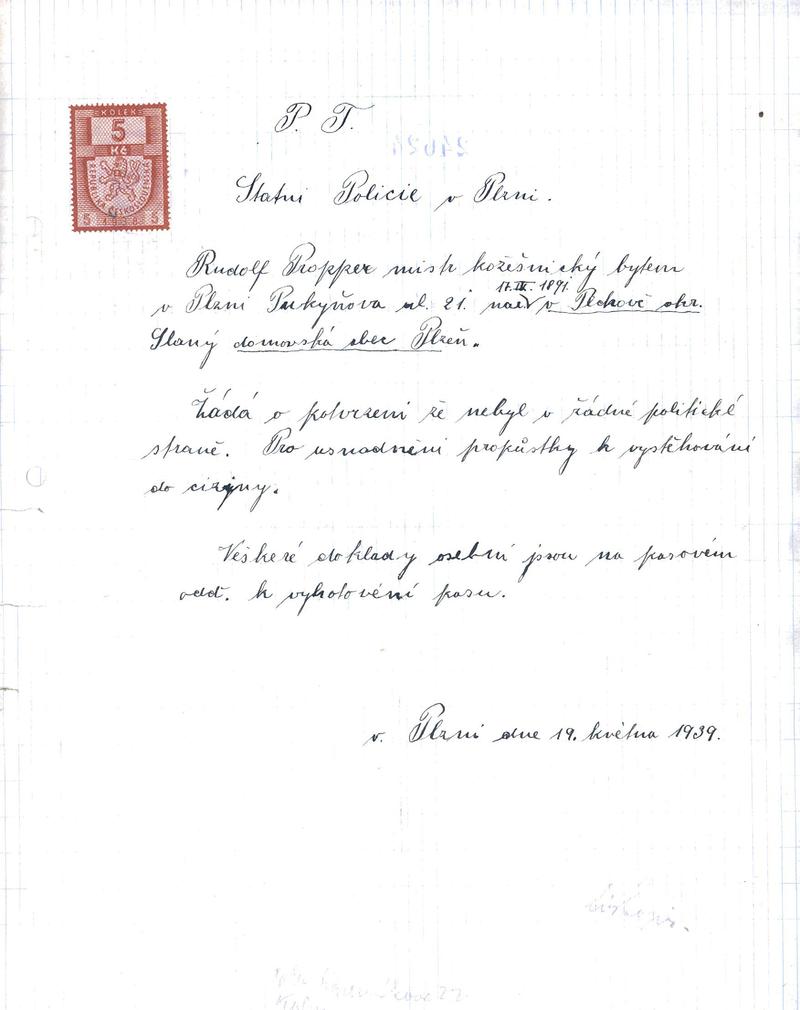 KOLEK
5
Kč
REPUBLIKA ČESKOSLOVENSKÁ
5 1938 5
P. T.
24624
Statni Policie v Plzni.
Rudolf Propper mistr kožešnický bytem
17. IV. 1891.
v Plzni Purkyňova ul. 21. nar. v Plchově okr.
Slaný domovská obec Plzeň.
Žádá o potvrzeni že nebyl v žádné politické
straně. Pro usnadnéni propůstky k vystěhování
do cizyny.
Veškeré doklady osebni jsou na pasovém
odd. k vyhotovéni pasu.
v. Plzni dne 19. května 1939.
22